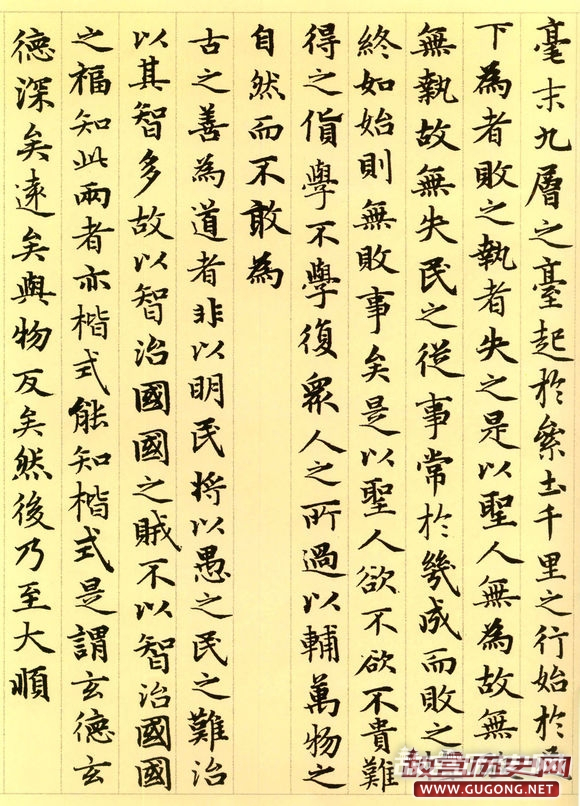 毫末九層之臺起於絫土千里之行始於
下為者敗之執者失之是以聖人無為故無
無執故無失民之從事常於幾成而敗之
終如始則無敗事矣是以聖人欲不欲不貴難
得之貨學不學復眾人之所過以輔萬物之
自然而不敢為
古之善為道者非以明民將以愚之民之難治
以其智多故以智治國國之賊不以智治國國
之福知此兩者亦楷式能知楷式是謂玄德玄
德深矣遠矣與物反矣然後乃至大順
故宫历史网
www.GUGONG.NET